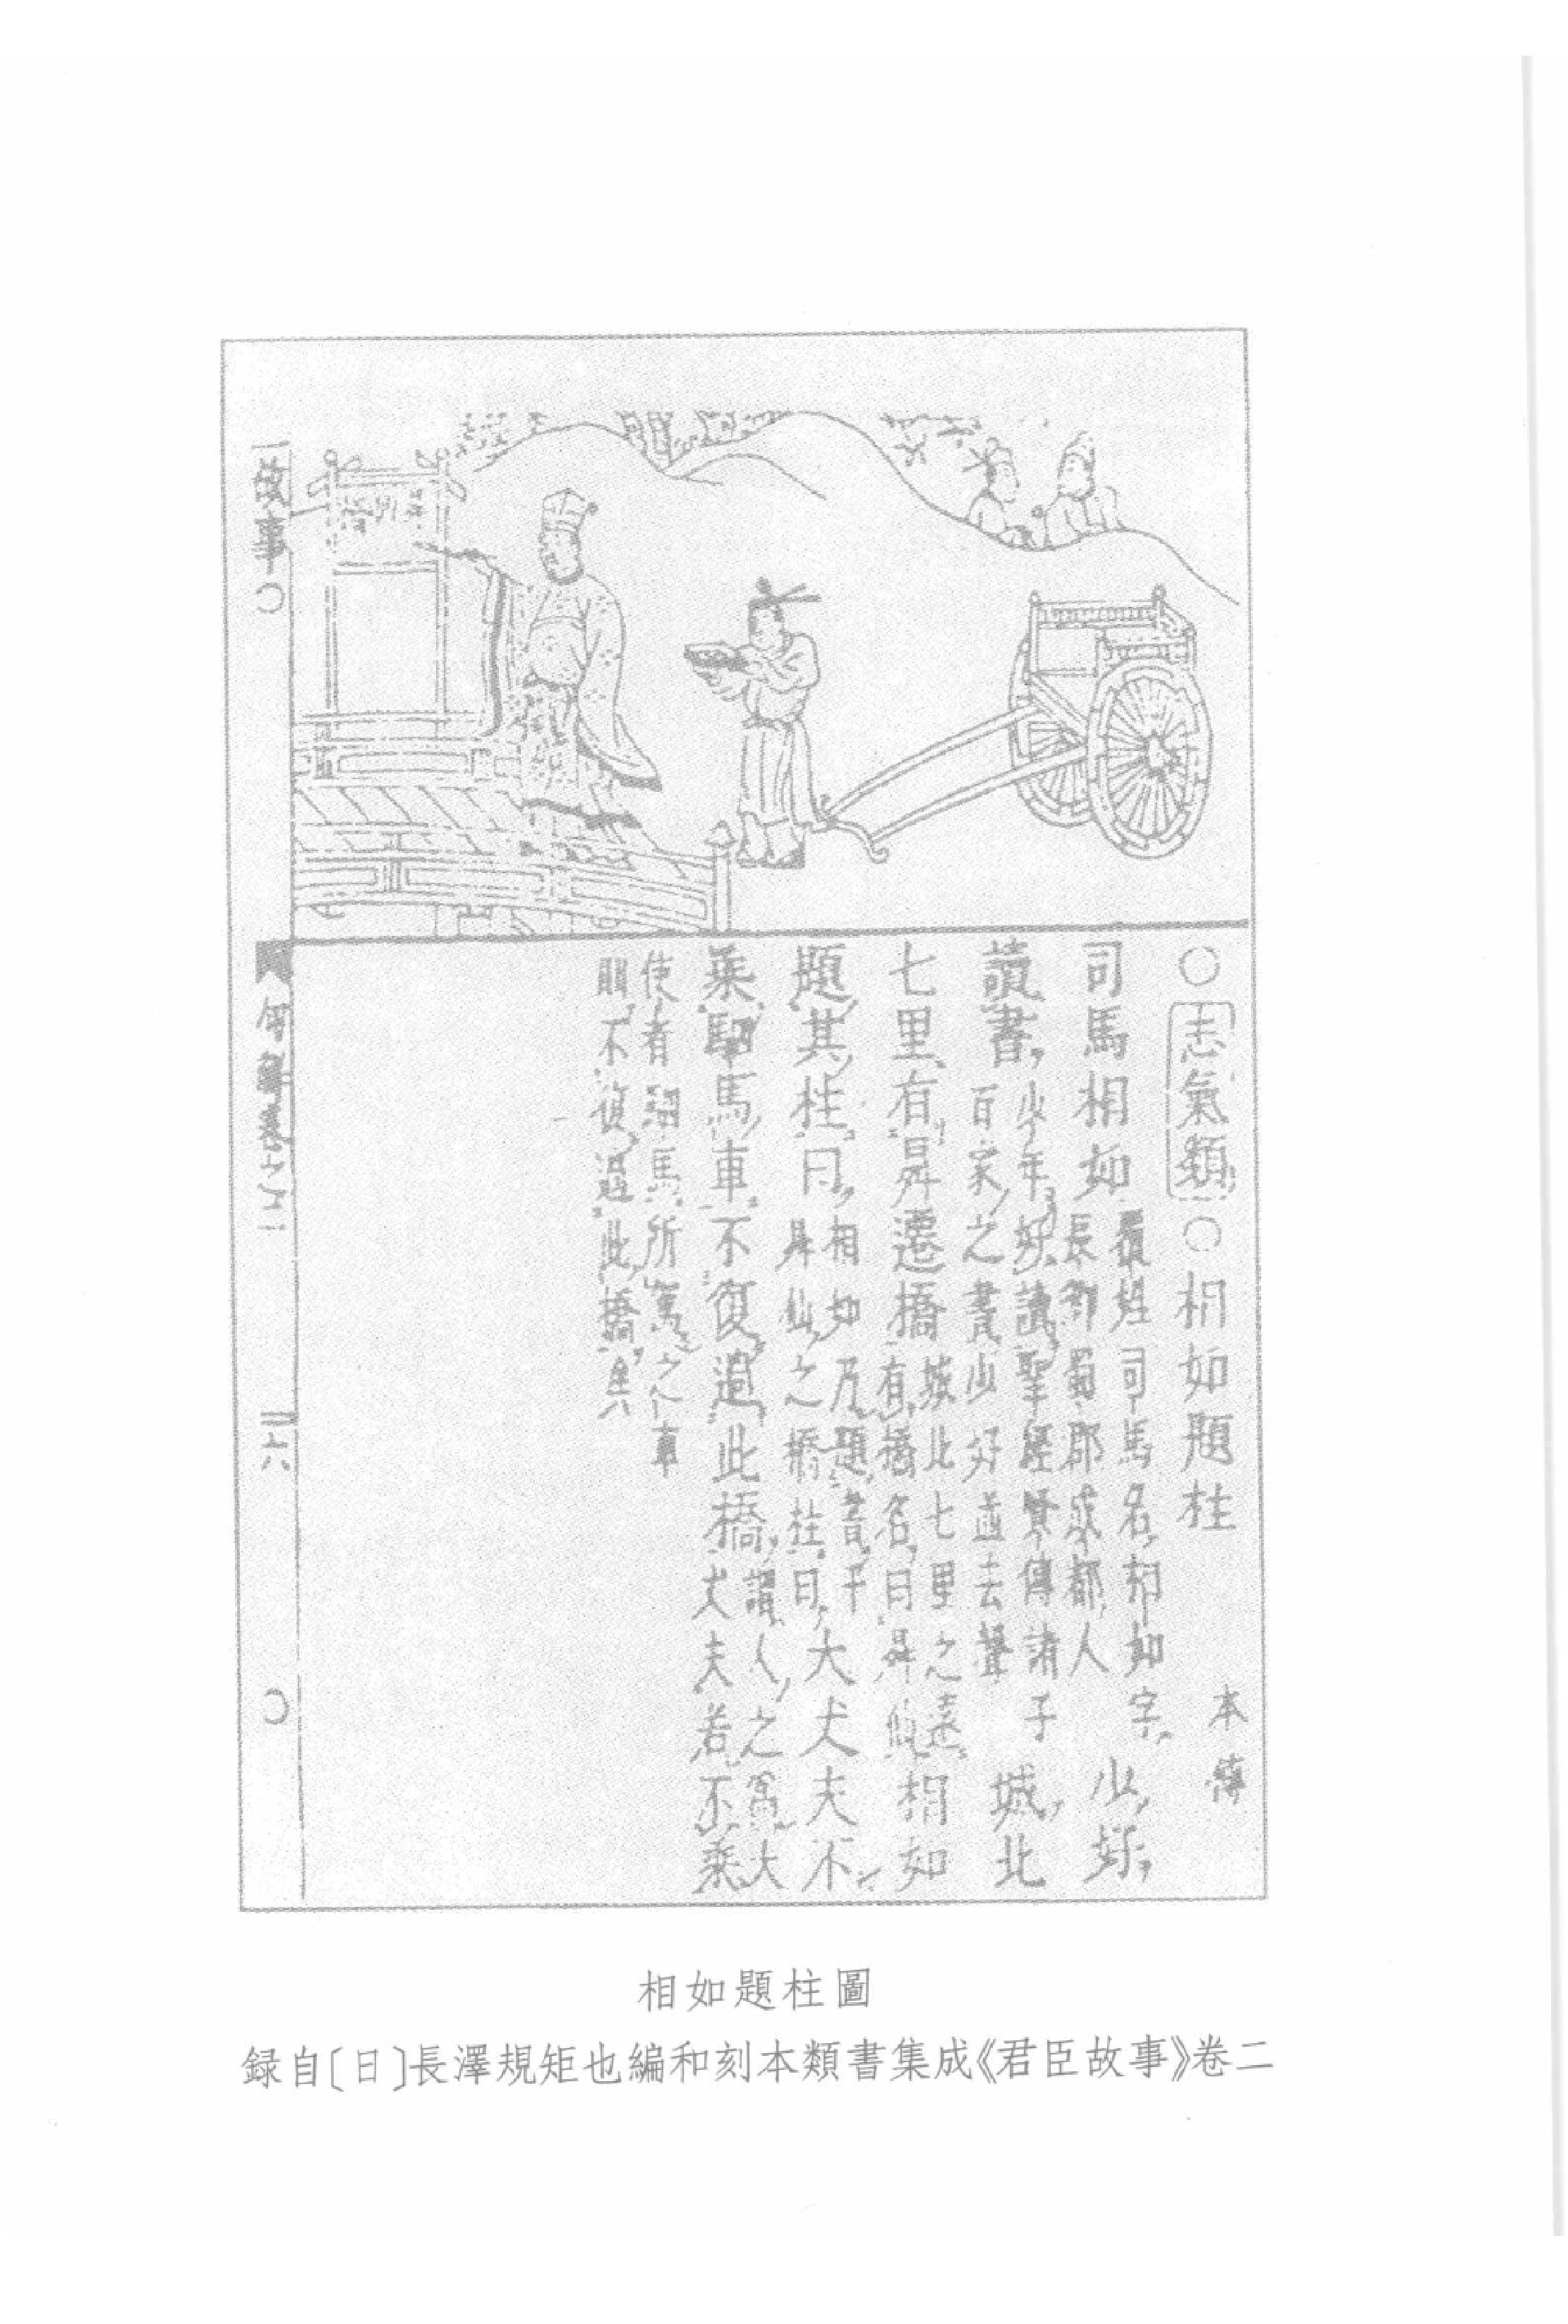 ○志氣類○相如題柱 本傳
司馬相如覆姓司馬名相如字長卿蜀郡成都人少好
讀書少年好讀聖經賢傳諸子百家之書少好並去聲城北
七里有昇遷橋城北七里之遠有橋名曰昇仙相如
題其柱曰相如乃題書于昇仙之橋柱曰大丈夫不
乘駟馬車不復過此橋謂人之為大丈夫若不乘
使者駟馬所駕之車則不復過此橋矣
故事○
卷之二
十六
○
相如題柱圖
録自〔日〕長澤規矩也編和刻本類書集成《君臣故事》卷二